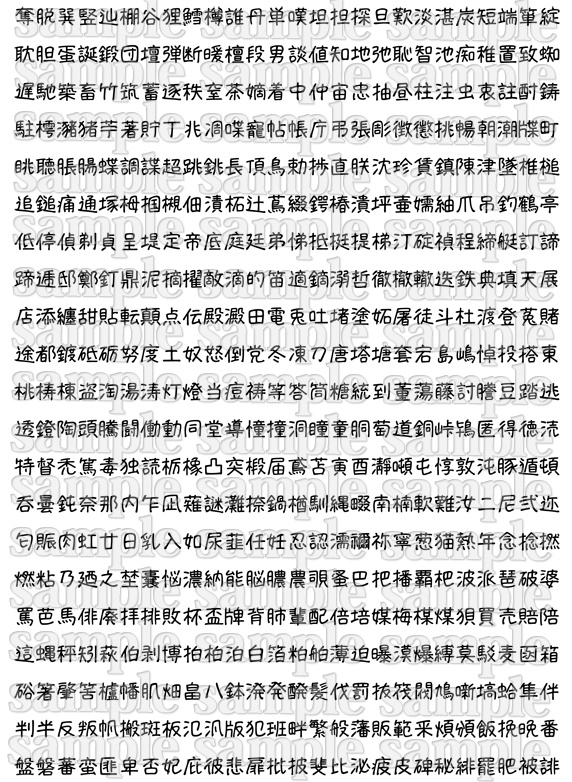 奪脱巽竪辿棚谷狸鱈樽誰丹単嘆坦担探旦歎淡湛炭短端箪綻
耽胆蛋誕鍛団壇弾断暖檀段男談値知地弛恥智池痴稚置致蜘
遅馳築畜竹筑蓄逐秩窒茶嫡着中仲宙忠抽昼柱注虫衷註酎鋳
駐樗瀦猪苧著貯丁兆凋喋寵帖帳庁弔張彫徴懲挑暢朝潮牒町
眺聴脹腸蝶調諜超跳銚長頂鳥勅捗直朕沈珍賃鎮陳津墜椎槌
追鎚痛通塚栂掴槻佃漬柘辻蔦綴鍔椿潰坪壷嬬紬爪吊釣鶴亭
低停偵剃貞呈堤定帝底庭廷弟悌抵挺提梯汀碇禎程締艇訂諦
蹄逓邸鄭釘鼎泥摘擢敵滴的笛適鏑溺哲徹撤轍迭鉄典填天展
店添纏甜貼転顛点伝殿澱田電兎吐堵塗妬屠徒斗杜渡登菟賭
途都鍍砥砺努度土奴怒倒党冬凍刀唐塔塘套宕島嶋悼投搭東
桃梼棟盗淘湯涛灯燈当痘祷等答筒糖統到董蕩藤討謄豆踏逃
透鐙陶頭騰闘働動同堂導憧撞洞瞳童胴萄道銅峠鴇匿得徳涜
特督禿篤毒独読栃橡凸突椴届鳶苫寅酉瀞噸屯惇敦沌豚遁頓
呑曇鈍奈那内乍凪薙謎灘捺鍋楢馴縄畷南楠軟難汝二尼弐迩
匂賑肉虹廿日乳入如尿韮任妊忍認濡禰祢寧葱猫熱年念捻撚
燃粘乃廼之埜嚢悩濃納能脳膿農覗蚤巴把播覇杷波派琶破婆
罵芭馬俳廃拝排敗杯盃牌背肺輩配倍培媒梅楳煤狽買売賠陪
這蝿秤矧萩伯剥博拍柏泊白箔粕舶薄迫曝漠爆縛莫駁麦函箱
硲箸肇筈櫨幡肌畑畠八鉢溌発醗髪伐罰抜筏閥鳩噺塙蛤隼伴
判半反叛帆搬斑板氾汎版犯班畔繁般藩販範釆煩頒飯挽晩番
盤磐蕃蛮匪卑否妃庇彼悲扉批披斐比泌疲皮碑秘緋罷肥被誹